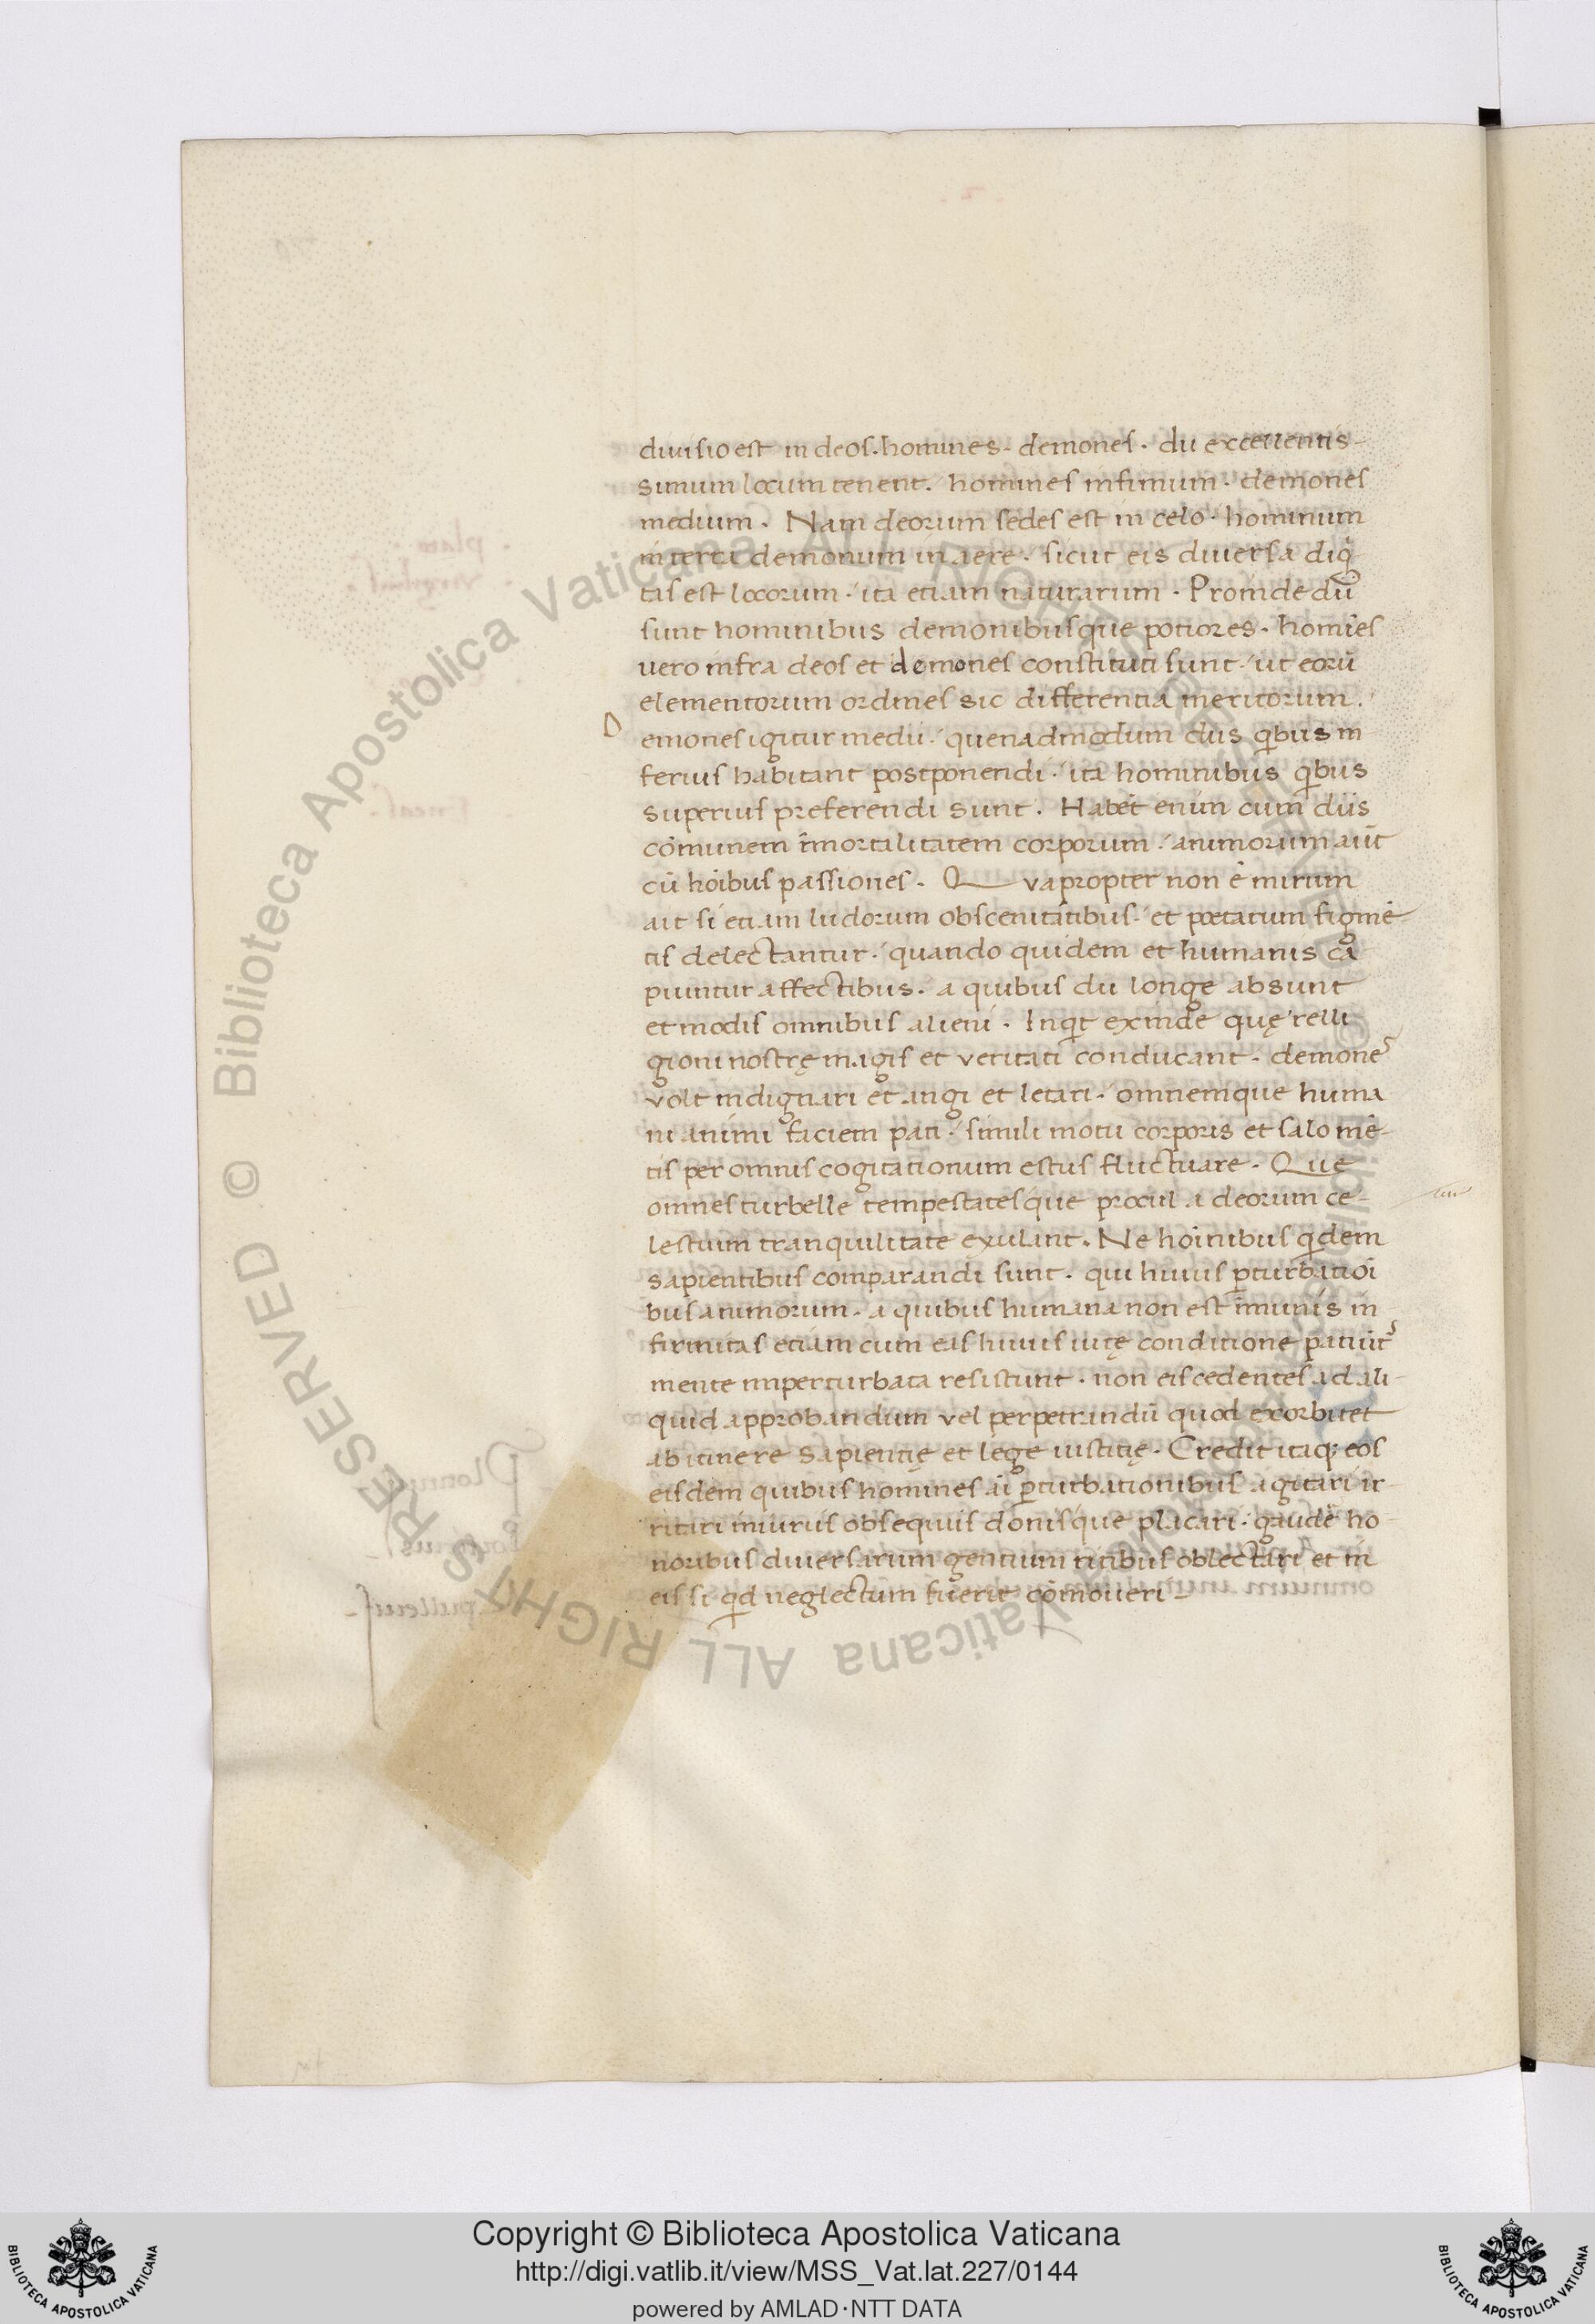 diuisio est in deos. homines. demones. dii excellentis-
simum locum tenent. homines infimum. demones
medium. Nam deorum sedes est in celo. hominum
in terra demonum in aere. sicut eis diuersa dig̃
tas est locorum. ita etiam naturarum. Proinde dii
sunt hominibus demonibusque potiores. homĩes
uero infra deos et demones constituti sunt. ut eorũ
elementorum ordines sic differentia meritorum.
D
emones igitur medii. quenadmodum diis qibus in
ferius habitant postponendi. ita hominibus qibus
superius preferendi sunt. Habẽt enim cum diis
cõmunem ĩmortalitatem corporum. animorum aũt
cũ hoĩbus passiones. Quapropter non ẽ mirum
ait si etiam ludorum obscenitatibus. et poetarum figmẽ-
tis delectantur. quando quidem et humanis ca
piuntur affectibus. a quibus dii longe absunt
et modis omnibus alieni. Inqit exinde quę relli
gioni nostrę magis et ueritati conducant. demones
volt indignari et angi et letari. omnemque huma
ni animi faciem pati. simili motu corporis et salo mẽ-
tis per omnis cogitationum estus fluctuare. Quę
omnes turbelle tempestatesque procul a deorum ce-
lestium tranquilitate exulant. Ne hoĩnibus qidem
sapientibus comparandi sunt. qui huius pturbatiõi
bus animorum. a quibus humana non est ĩmunis in
firmitas etiam cum eas huius uitę conditione patiũt
mente imperturbata resistunt. non eis cedentes ad ali-
quid approbandum vel perpetrandũ quod exorbitet
ab itinere sapientię et lege iustitię. Credit itaq; eos
eisdem quibus homines aĩ pturbationibus agitari ir-
ritari iniuriis obsequiis donisque placari. gaudẽ ho-
noribus diuersarum gentium ritibus oblectari et in
eis si qid neglectum fuerit cõmoueri-
Copyright © Biblioteca Apostolica Vaticana
http://digi.vatlib.it/view/MSS_Vat.lat.227/0144
powered by AMLAD·NTT DATA
BIBLIOTECA APOSTOLICA VATICANA
BIBLIOTECA APOSTOLICA VATICANA
© Biblioteca Apostolica Vaticana ALL RIGHTS RESERVED
© Biblioteca Apostolica Vaticana ALL RIGHTS RESERVED